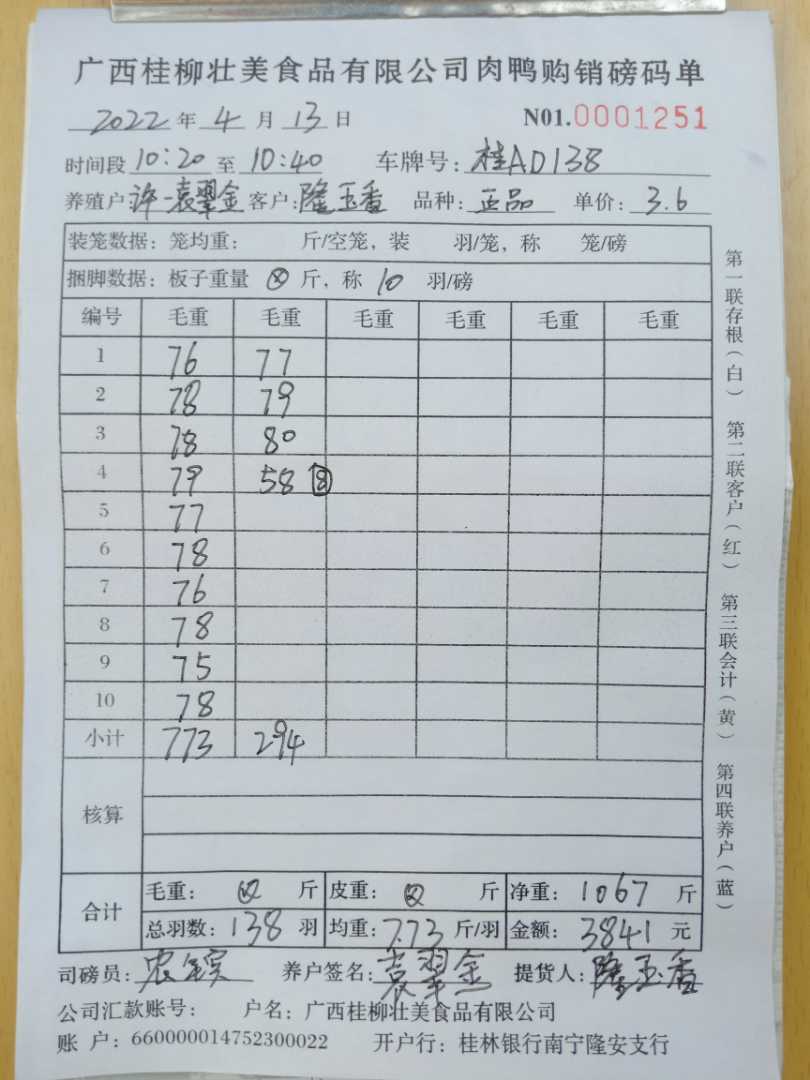 广西桂柳壮美食品有限公司肉鸭购销磅码单
2022 年 4 月 13 日 N01.0001251
时间段 10:20 至 10:40 车牌号: 桂AD138
养殖户: 许-袁翠金 客户: 隆玉香 品种: 正品 单价: 3.6
装笼数据: 笼均重: 斤/空笼, 装 羽/笼, 称 笼/磅
捆脚数据: 板子重量 斤, 称 10 羽/磅
编号 毛重 毛重 毛重 毛重 毛重 毛重
1 76 77
2 78 79
3 78 80
4 79 58 8
5 77
6 78
7 76
8 78
9 75
10 78
小计 773 294
核算
合计 毛重: 斤 皮重: 斤 净重: 1067 斤
总羽数: 138 羽 均重: 7.73 斤/羽 金额: 3841 元
司磅员: 养户签名: 袁翠金 提货人: 隆玉香
公司汇款账号: 户名: 广西桂柳壮美食品有限公司
账 户: 660000014752300022 开户行: 桂林银行南宁隆安支行
第一联存根(白) 第二联客户(红) 第三联会计(黄) 第四联养户(蓝)